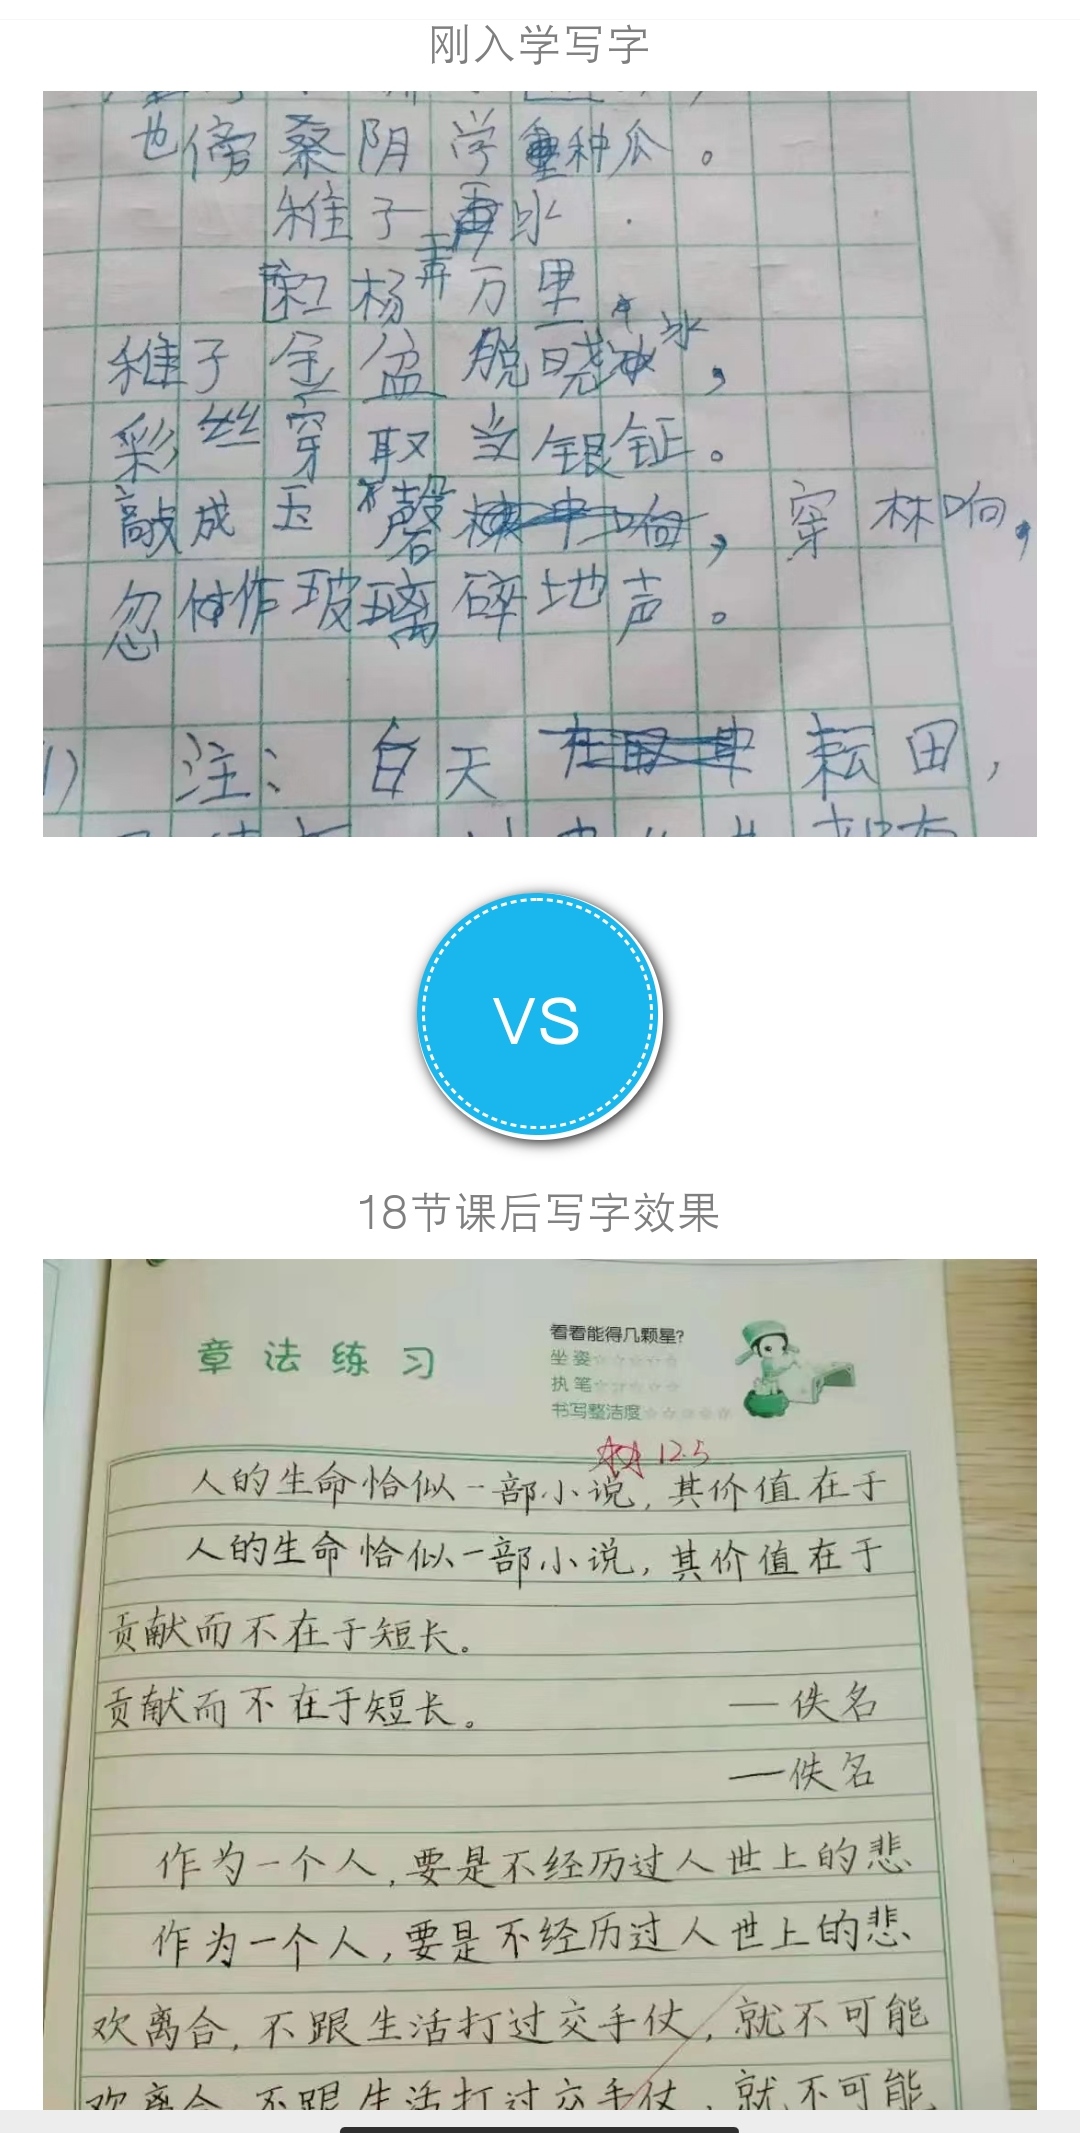 刚入学写字
也傍桑阴学种瓜。
稚子弄冰
杨万里
稚子金盆脱晓冰,
彩丝穿取当银钲。
敲成玉磬穿林响,
忽作玻璃碎地声。
注:白天耘田,
VS
18节课后写字效果
章法练习
看看能得几颗星?
坐姿☆☆☆☆☆
执笔☆☆☆☆☆
书写整洁度☆☆☆☆☆
12.5
人的生命恰似一部小说,其价值在于
人的生命恰似一部小说,其价值在于
贡献而不在于短长。
贡献而不在于短长。 —佚名
—佚名
作为一个人,要是不经历过人世上的悲
作为一个人,要是不经历过人世上的悲
欢离合,不跟生活打过交手仗,就不可能
欢离合,不跟生活打过交手仗,就不可能